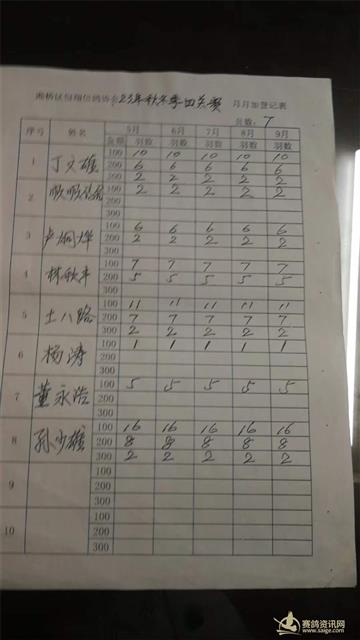 湘桥区恒翔信鸽协会23年秋冬季四关赛 月月加登记表
页数：7
序号 姓名 5月 6月 7月 8月 9月
金额 羽数 羽数 羽数 羽数 羽数
1 丁文雄 100 10 10 10 10 10
200 6 6 6 6 6
300 2 2 2 2 2
2 顺顺 100 2 2 2 2 2
200
300
3 卢炯烨 100 6 6 6 6 6
200 2 2 2 2 2
300
4 林歆平 100 7 7 7 7 7
200 5 5 5 5 5
300
5 土八路 100 11 11 11 11 11
200 7 7 7 7 7
300 2 2 2 2 2
6 杨涛 100 1 1 1 1 1
200
300
7 董永浩 100 5 5 5 5 5
200
300
8 孙少雄 100 16 16 16 16 16
200 8 8 8 8 8
300 2 2 2 2 2
9 100
200
300
10 100
200
300
赛鸽资讯网
www.saige.com